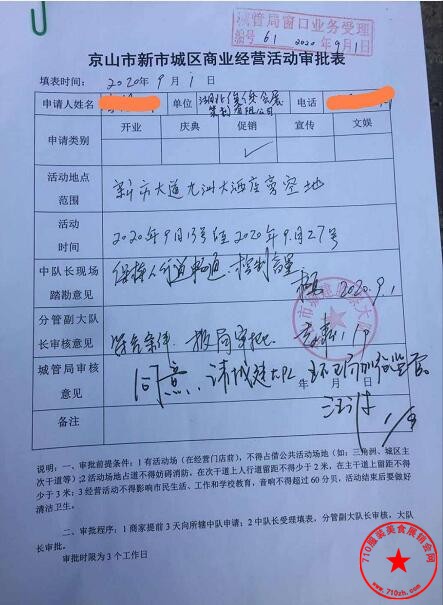 城管局窗口业务受理
编号 61 2020年9月1日
京山市新市城区商业经营活动审批表
填表时间: 2020年9月1日
申请人姓名 单位 电话
策划有限公司
申请类别 开业 庆典 促销 宣传 文娱
✓
活动地点
范围
新市大道九洲大酒店旁空地
活动
时间
2020年9月13号至2020年9月27号
中队长现场
踏勘意见
保持人行道畅通、控制音量
2020.9.1
分管副大队
长审核意见
符合条件、报局审批. 1/9
城管局审核
意见
同意、请城建大队 加强监管。
年 月 日
1/9
备注
说明:一、审批前提条件:1有活动场(在经营门店前),不得占借公共活动场地(如:三角洲、城区主
次干道等);2活动场地占道不得妨碍消防。在次干道上人行道留距不得少于2米,在主干道上留距不得
少于3米;3经营活动不得影响市民生活、工作和学校教育,音响不得超过60分贝,活动结束后要做好
清洁卫生。
二、审批程序:1商家提前3天向所辖中队申请;2中队长受理填表,分管副大队长审核,大队
长审批。
审批时限为3个工作日
710服装美食展销会网
www.710zh.com